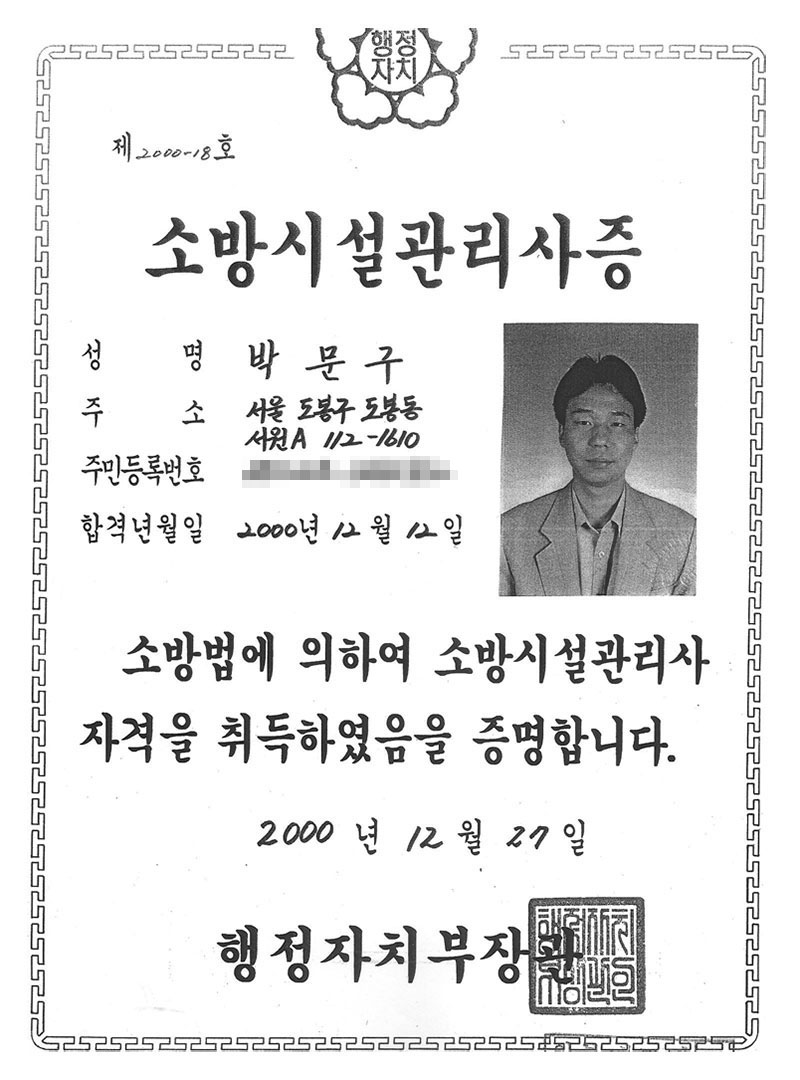 행정
자치
제 2000-18 호
소방시설관리사증
성 명 박 문 구
주 소 서울 도봉구 도봉동
서원A 112-1610
주민등록번호
합격년월일 2000년 12월 12일
소방법에 의하여 소방시설관리사
자격을 취득하였음을 증명합니다.
2000 년 12 월 27 일
행정자치부장관